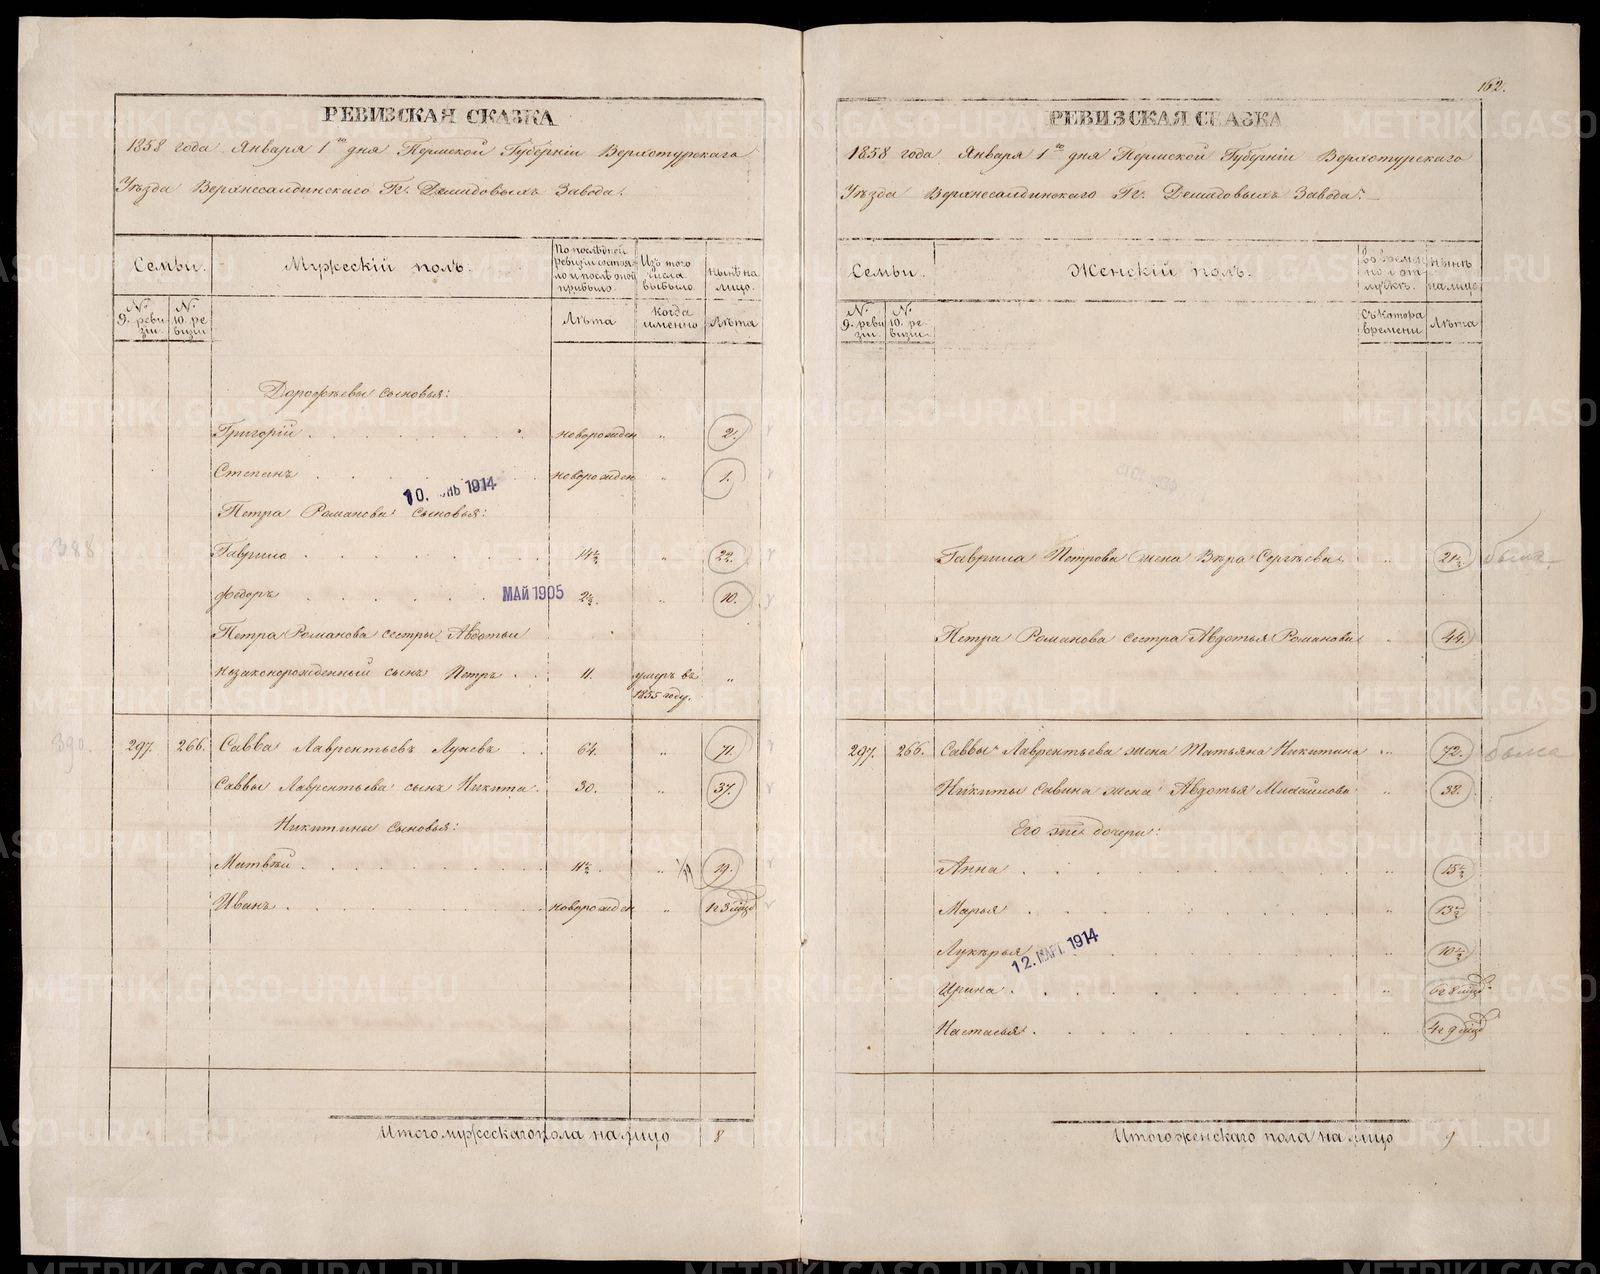 162.
РЕВИЗСКАЯ СКАЗКА
1858 года Января 1го дня Пермской Губерніи Верхотурскаго
Уѣзда Верхнесалдинскаго Гг. Демидовыхъ Завода.
Семьи.
Мужескій полъ.
По послѣдней ревизіи состояло и послѣ оной прибыло.
Изъ того числа выбыло.
Нынѣ на лицо.
№ 9. ревизіи.
№ 10. ревизіи
Лѣта
Когда именно
Лѣта
Дорофѣевы сыновья:
Григорій новорожден „ 2.
Степанъ новорожден „ 1.
10. 1914
Петра Романова сыновья:
388
Гаврило 14½ „ 22.
Федоръ МАЙ 1905 2½. „ 10.
Петра Романова сестры Авдотьи
незаконорожденный сынъ Петръ 11. умеръ въ 1855 году. „
390.
297. 266. Савва Лаврентьевъ Луневъ 64. „ 71.
Саввы Лаврентьева сынъ Никита. 30. „ 37.
Никитины сыновья:
Матвѣй 11½. „ 19.
Иванъ новорожден „ 1 и 3 мѣц
Итого мужескаго пола на лицо 8
РЕВИЗСКАЯ СКАЗКА
1858 года Января 1го дня Пермской Губерніи Верхотурскаго
Уѣзда Верхнесалдинскаго Гг. Демидовыхъ Завода.
Семьи.
Женскій полъ.
Во временной отлучкѣ.
Нынѣ на лицо
№ 9. ревизіи.
№ 10. ревизіи.
Съ котора времени
Лѣта
Гаврила Петрова жена Вѣра Сергѣева „ 21½ была
Петра Романова сестра Авдотья Романова „ 44.
297. 266. Саввы Лаврентьева жена Татьяна Никитина „ 72. была
Никиты Савина жена Авдотья Михайлова „ 38.
Его же дочери:
Анна „ 15½
Марья „ 13½
Лукерья „ 10½
12. МАРТ 1914
Ирина „ 6 и 8 мѣц
Настасья „ 4 и 9 мѣц
Итого женскаго пола на лицо 9
METRIKI.GASO-URAL.RU